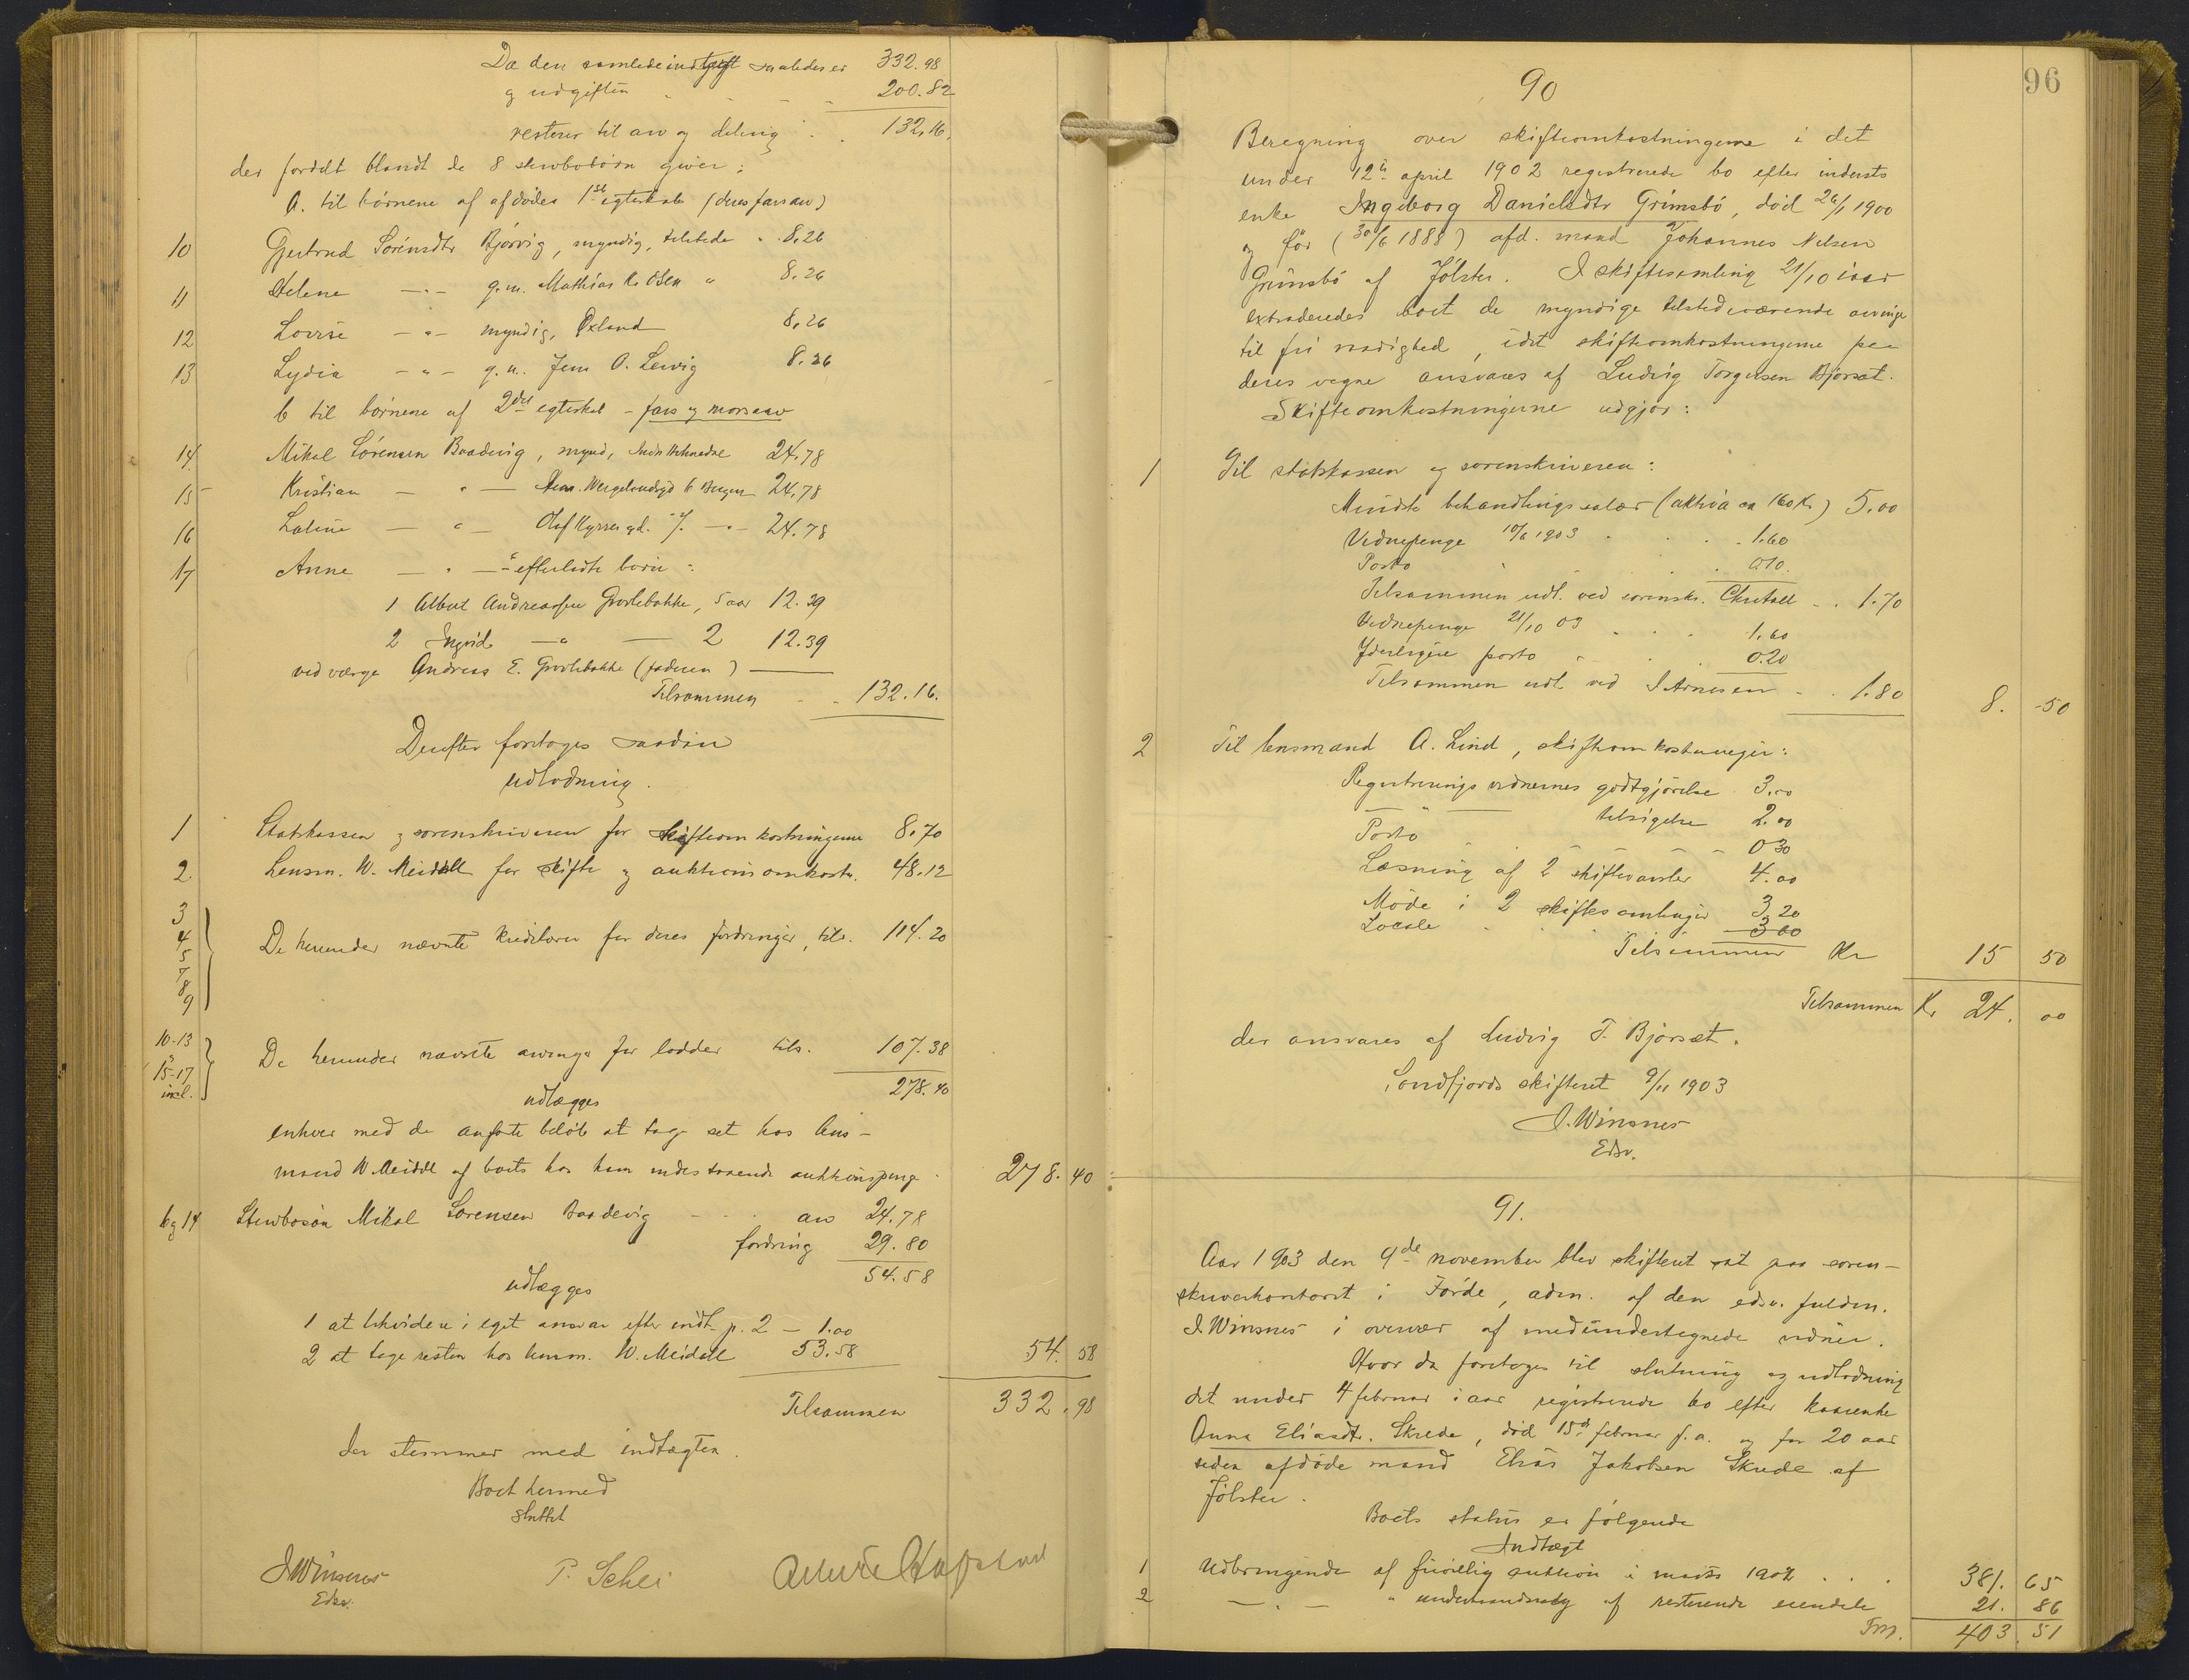 Da den samlede indtægt saaledes er 332.98
og udgiften " - - - 200.82
resterer til arv og deling . . 132,16.
der fordelt blandt de 8 stervbobörn giver:
A. til börnene af afdödes 1ste egteskab (deres farsarv)
10 Gjertrud Sörensdtr Bjørvig, myndig, tilstede - . 8,26
11 Helene — " — g. m. Mathias K. Osen " 8.26
12 Lovise — " — myndig, 8,26
13 Lydia — " — g. m. Jens O. Lervig 8.26
b til börnene af 2det egteskab - fars og morsarv
14 Mikal Sörensen Baadevig, mynd, 24,78
15 Kristian — " — Wergelandsgd 6 Bergen 24,78
16 Laline — " — Olaf Kyrres gd. — " — 24.78
17 Anne — " — efterladte börn:
1 Albert Andreassen Grovlebakke, 5 aar 12.39
2 Ingrid — " — 2 12.39
ved værge Andreas E. Grovlebakke (faderen) —
Tilsammen - . 132.16.
Derefter foretoges saadan
udlodning.
1 Statskassen og sorenskriveren for skifteomkostningerne 8.70
2. Lensm. W. Meidell for skifte og auktionsomkostn. 48.12
3
4
5
7
8
9
De herunder nævnte kreditorer for deres fordringer, tils. 114.20
10-13
"
15-17
incl.
De herunder nævnte arvinger for lodder tils. 107.38
278.40
udlægges
enhver med de anförte beløb at tage det hos lens-
mand W Meidell af boets hos ham indestaaende auktionspenge . 278.40
6 og 14 Stervbosön Mikal Sörensen Baadevig - - . arv 24.78
fordring 29.80
54.58
udlægges
1 at likvidere i eget ansvar efter indt. p. 2 — 1.00
2 at tage resten hos lensm. W. Meidell 53.58 54.58
Tilsammen 332.98
der stemmer med indtægten.
Boet hermed
sluttet
J Winsnes
Edsv.
P. Schei
96
90
Beregning over skifteomkostningerne i det
under 12te april 1902 registrerede bo efter inderste
enke Ingeborg Danielsdtr Grimsbö, död 26/1 1900
og för (30/6 1888) afd. mand Johannes Nilsen
Grimsbö af Jölster. I skiftesamling 21/10 iaar
extraderedes boet de myndige tilstedeværende arvinge
til fri raadighed, idet skifteomkostningerne paa
deres vegne ansvares af Ludvig Torgersen Bjørsæt.
Skifteomkostningerne udgjør:
1 Til statskassen og sorenskriveren:
Mindste behandlingssalær (aktiva ca 160 Kr.) 5.00
Vidnepenge 10/6 1903 . . . 1.60
Porto . . . 0.10.
Tilsammen udl. ved sorenskr. . . 1.70
Vidnepenge 21/10 03 . . . 1.60
Yderligere porto . . . 0.20
Tilsammen udl. ved S Arnesen - . 1.80 8. 50
2 Til lensmand A. Lind, skifteomkostninger:
Registreringsvidnernes godtgjörelse 3.00
— " — tilsigelse 2.00
Porto - - - - - 0 30
Læsning af 2 skiftevarsler 4.00
Möde i 2 skiftesamlinger 3.20
Locale . . . 3 00
Tilsammen Kr 15 50
Tilsammen Kr 24. 00
der ansvares af Ludvig T. Bjørsæt.
Söndfjords skifteret 9/11 1903
J. Winsnes
Edsv.
91.
Aar 1903 den 9de november blev skifteret sat paa soren-
skriverkontoret i Förde, adm. af den edsv. fuldm.
J Winsnes i overvær af medundertegnede vidner.
Hvor da foretoges til slutning og udlodning
det under 4 februar i aar registrerede bo efter kaarenke
Anna Eliasdtr. Skrede, död 15de februar f.a. og for 20 aar
siden afdöde mand Elias Jakobsen Skrede af
Jölster.
Boets status er fölgende
Indtægt
1 Udbringende af frivillig auktion i marts 1902 . . . 381. 65
2 — " — " underhaandssalg af resterende eiendele 21. 86
Tils. 403. 51